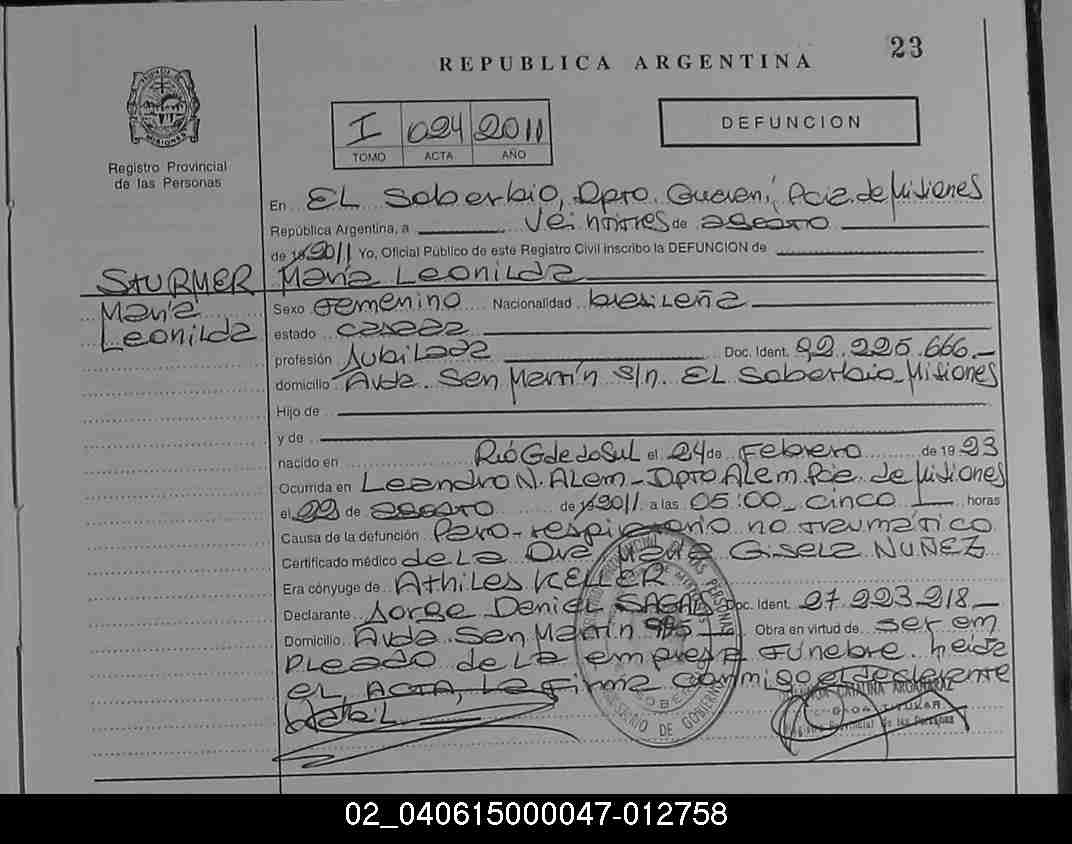 23
REPUBLICA ARGENTINA
I 024 2011
TOMO ACTA AÑO
DEFUNCION
Registro Provincial
de las Personas
En EL Soberbio, Dpto. Guaraní, Pcia. de Misiones
República Argentina, a veintitres de agosto
de 2011 Yo, Oficial Público de este Registro Civil inscribo la DEFUNCION de
STURMER María Leonilda
María
Leonilda
Sexo Femenino Nacionalidad brasileña
estado casada
profesión Jubilada Doc. Ident. 92.225.666.—
domicilio Avda. San Martín s/n. EL Soberbio, Misiones
Hijo de
y de
nacido en Río Gde do Sul el 24 de Febrero de 1923
Ocurrida en Leandro N. Alem - Dpto Alem Pcia. de Misiones
el 22 de agosto de 2011 a las 05:00 cinco horas
Causa de la defunción Paro-respiratorio no traumático
Certificado médico de La Dra María Gisela NUÑEZ
Era cónyuge de Athiles KELLER
Declarante Jorge Daniel Doc. Ident. 27.223.218.—
Domicilio Avda San Martín 985 Obra en virtud de ser em
pleado de la empresa Fúnebre. Leída
el ACTA, La firma conmigo el declarante
02_040615000047-012758